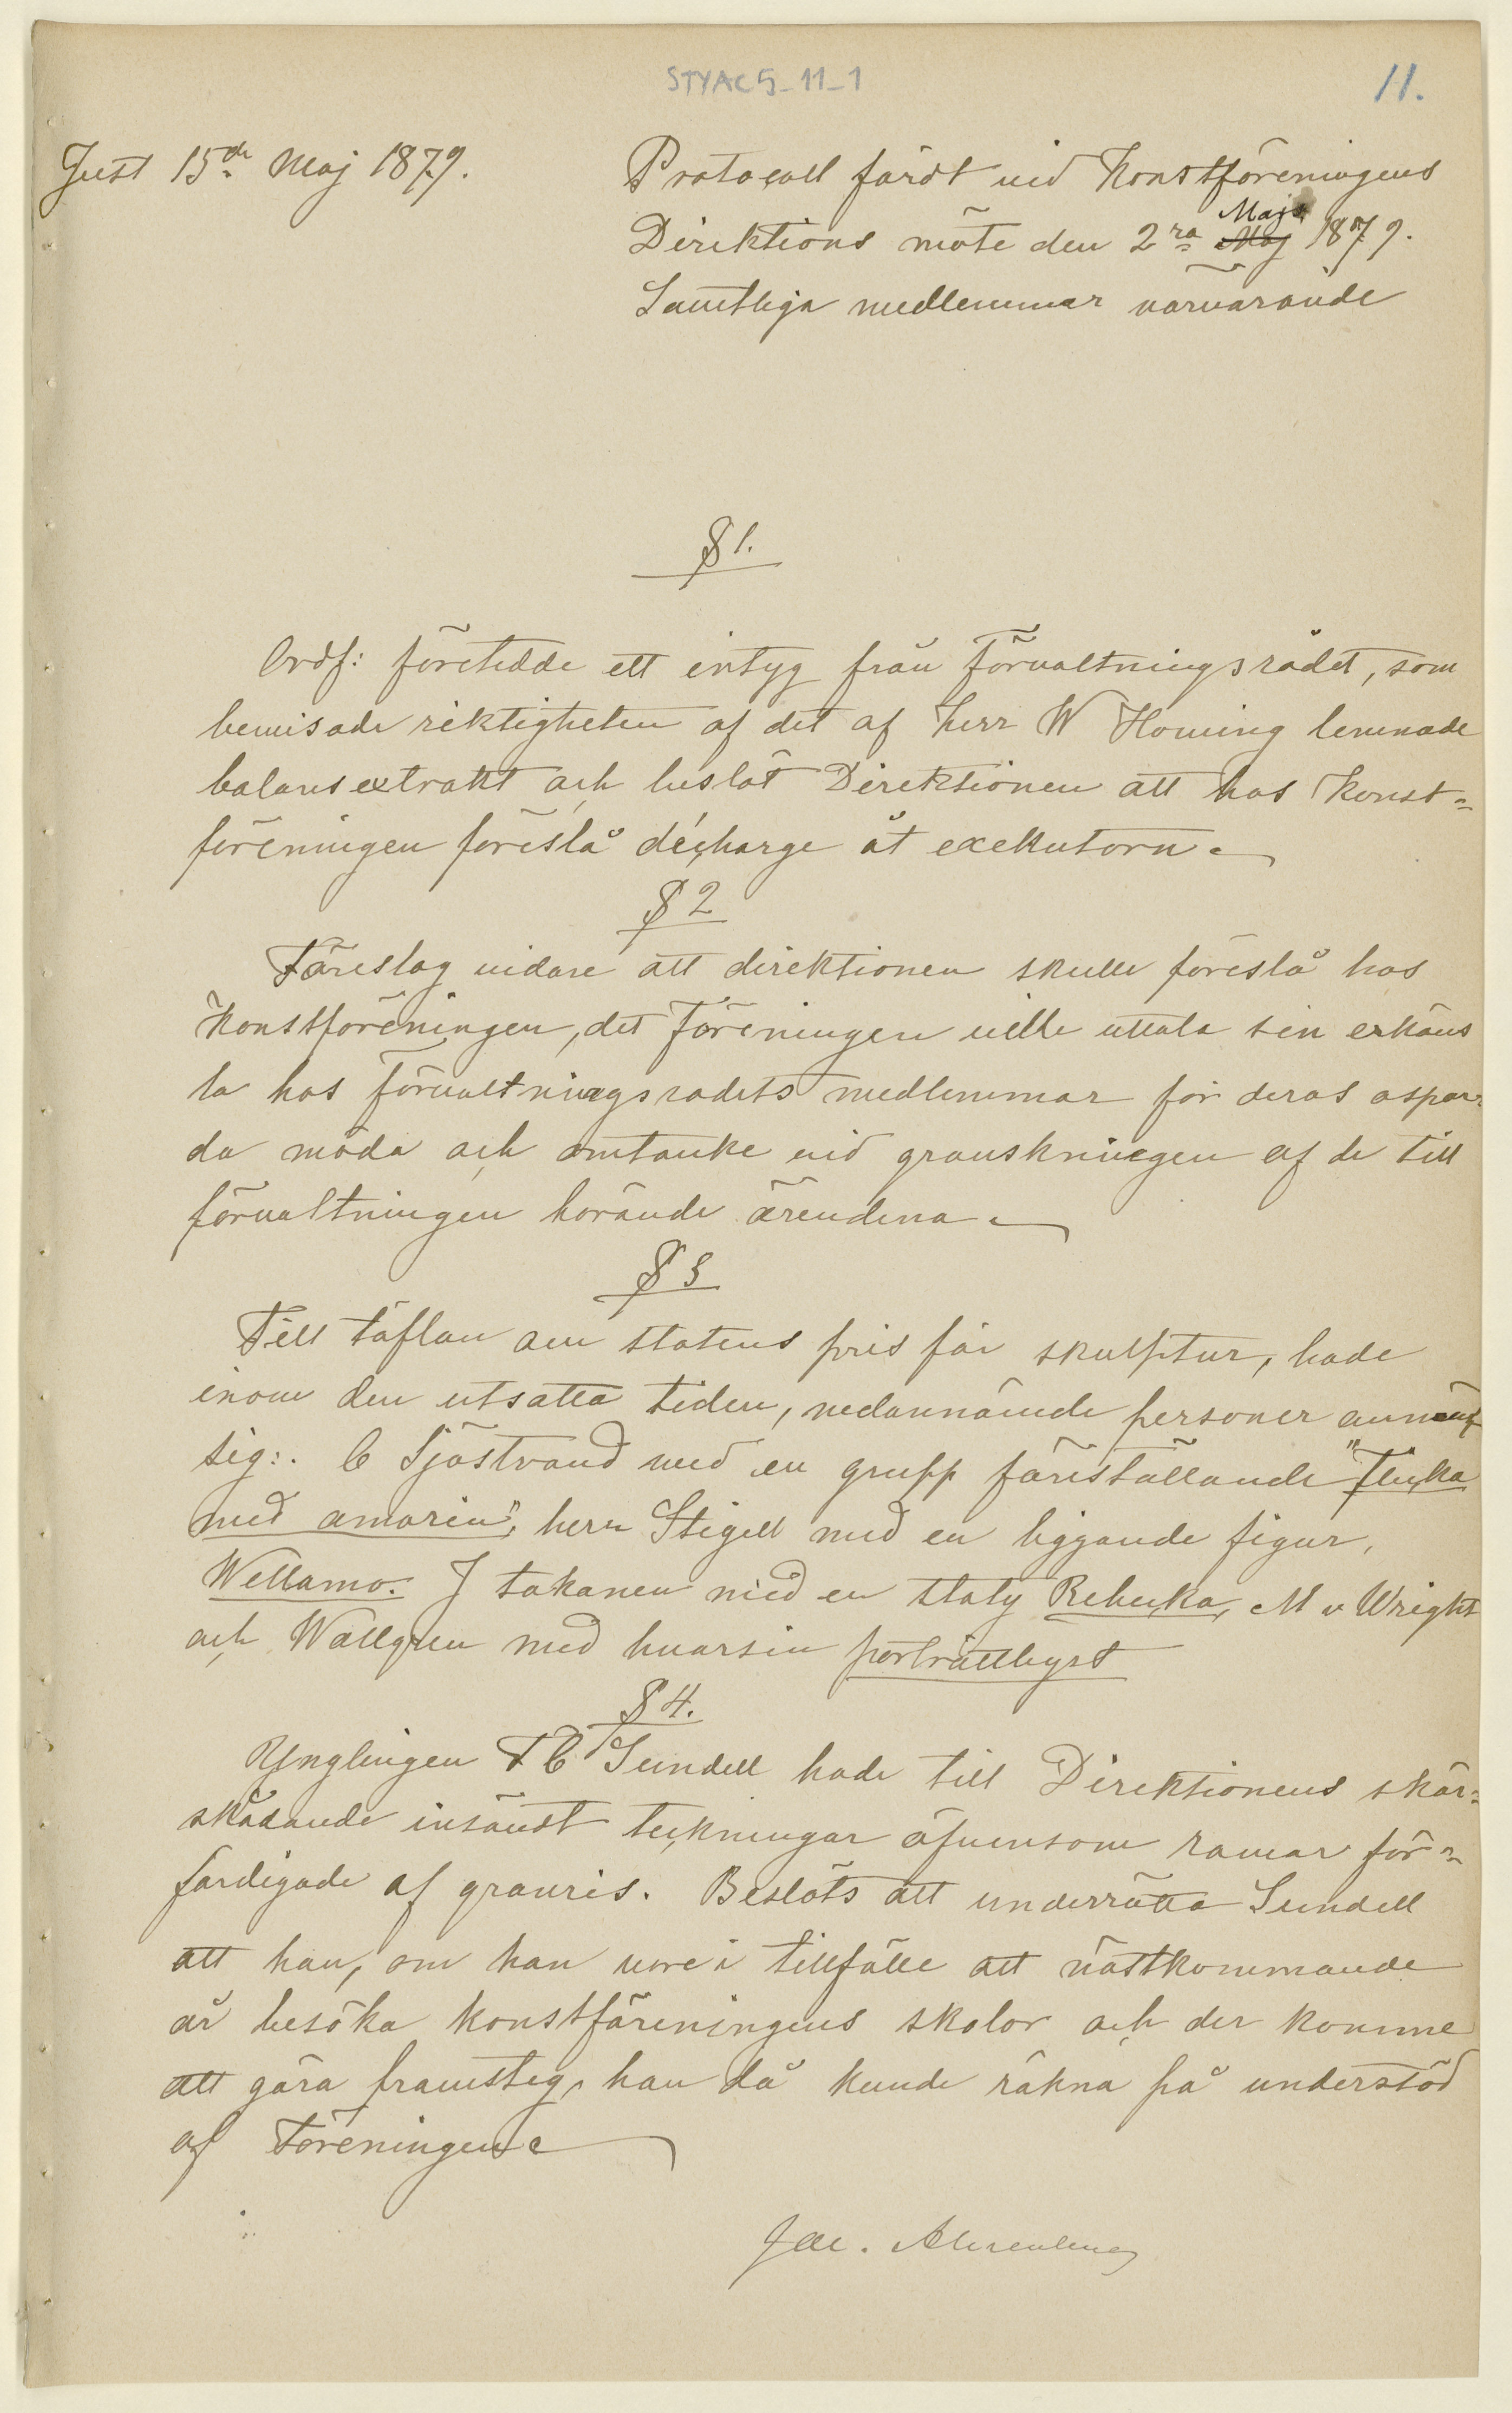 STYAC5_11_1
11.
Just 15de Maj 1879.
Protocoll fördt vid Konstföreningens
Majs
Direktions möte den 2ra Maj 1879.
Samtliga medlemmar närvarande
§ 1.
Ordf: företedde ett intyg från förvaltningsrådet, som
bevisade riktigheten af det af herr W Hoving lemnade
balansextrakt och beslöt Direktionen att hos Konst-
föreningen föreslå décharge åt exekutorn.
§ 2
Föreslog vidare att direktionen skulle föreslå hos
Konstföreningen, det Föreningen ville uttala sin erkäns
la hos förvaltningsradets medlemmar för deras ospar-
da möda och omtanke vid granskningen af de till
förvaltningen hörande ärendena.
§ 3
Till täflan om statens pris för skulptur, hade
inom den utsatta tiden, nedannämde personer anmält
sig:. C Sjöstrand med en grupp föreställande "Flicka
med amorin", herr Stigell med en liggande figur,
Wellamo. J takanen med en staty Rebecka, M v Wright
och Wallgren med hvarsin porträttbyst
§ 4.
Ynglingen F C Sundell hade till Direktionens skär-
skådande insändt teckningar äfvensom ramar för-
färdigade af granris. Beslöts att underrätta Sundell
att han, om han vore i tillfälle att nästkommande
år besöka konstföreningens skolor och der komme
att göra framsteg, han då kunde räkna på understöd
af Föreningen.
Jac. Ahrenberg